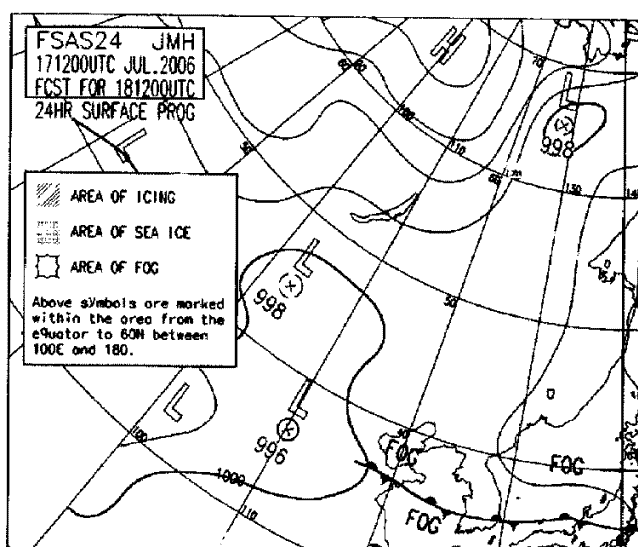 FSAS24 JMH
171200UTC JUL.2006
FCST FOR 181200UTC
24HR SURFACE PROG
AREA OF ICING
AREA OF SEA ICE
AREA OF FOG
Above symbols are marked
within the area from the
equator to 60N between
100E and 180.
L
998
L
998
L
L
996
L
1000
100
110
50
110
130
FOG
FOG
FOG